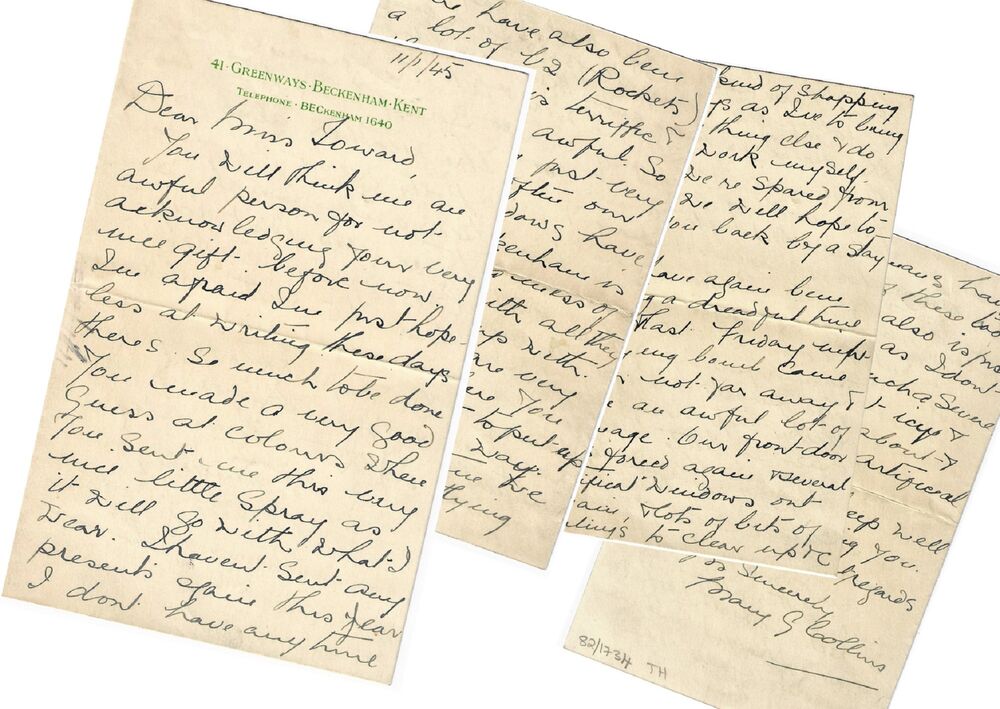 11/1/45
41 · GREENWAYS · BECKENHAM · KENT
TELEPHONE · BECKENHAM 1640
Dear Miss Toward,
You will think me an
awful person for not
acknowledging your very
nice gift before now.
I'm afraid I'm just hope-
less at writing these days
there's so much to be done
You made a very good
guess at colours when
you sent me this very
nice little spray as
it will go with what I
wear. I havent sent any
presents again this year
I dont have any time
have also been
a lot of V2 (Rockets)
is terrific &
awful So
just very
often our
dows have
kenham is
ness of
with all they
ys with
are very
ere you
to put up
way.
me we
flying
kind of shopping
as I've to bring
thing else & do
work myself.
we're spared from
we will hope to
you back by a stay
have again been
g a dreadful time
last Friday
ing bomb came
not far away &
an awful lot of
age. Our front door
forced again & several
ificial windows out
ain, & lots of bits of
ings to clear up &c
these too
also is
as I don't
ch a severe
t icy &
about &
artificial
eep well
g you.
regards
Yrs Sincerely
Mary G Collins
82/173H TH